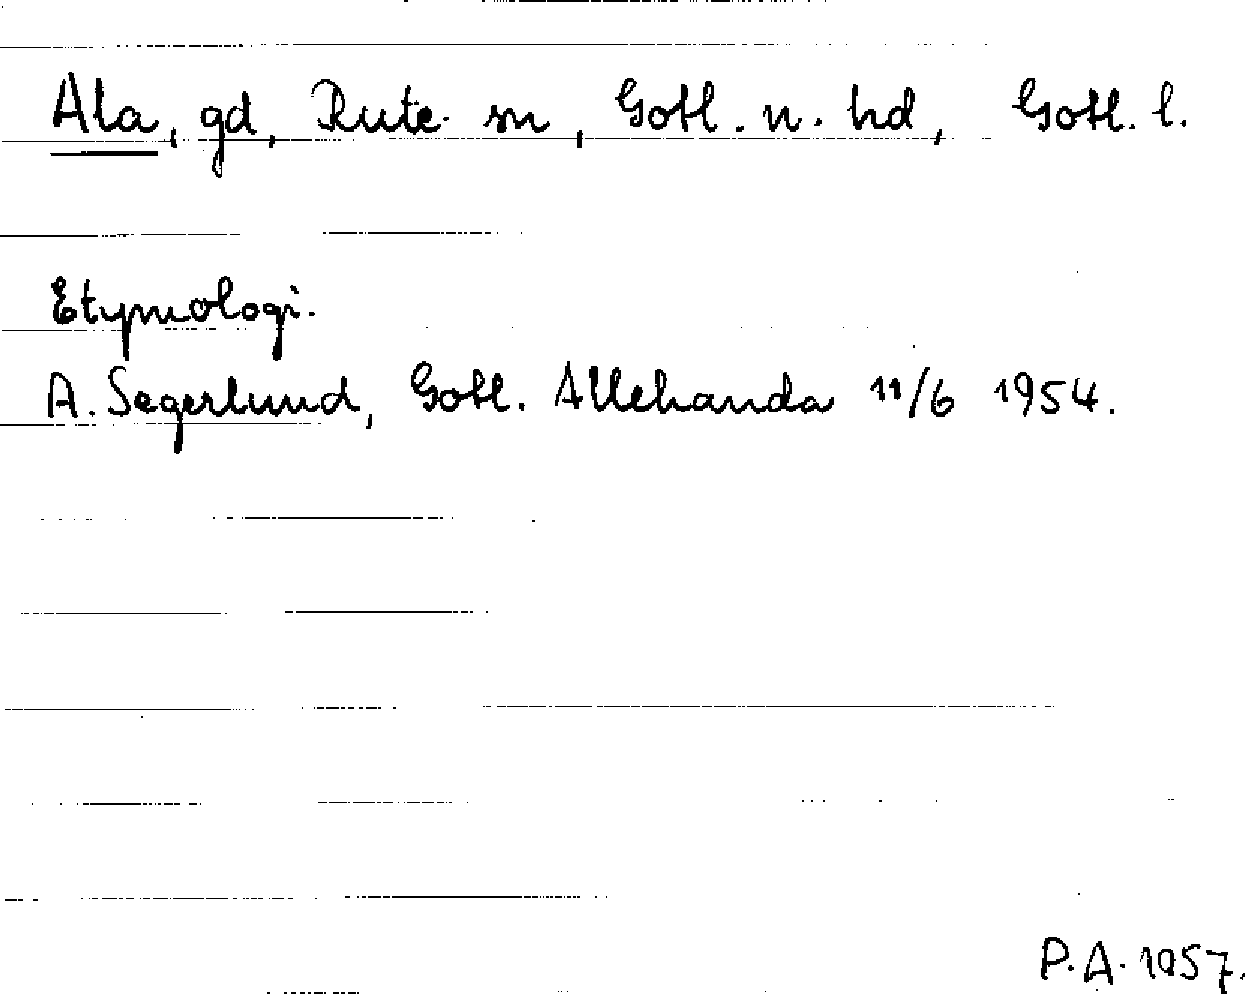 Ala, gd, Rute sn, Gotl. n. hd, Gotl. l.
Etymologi.
A. Segerlund, Gotl. Allehanda 11/6 1954.
P.A. 1957.